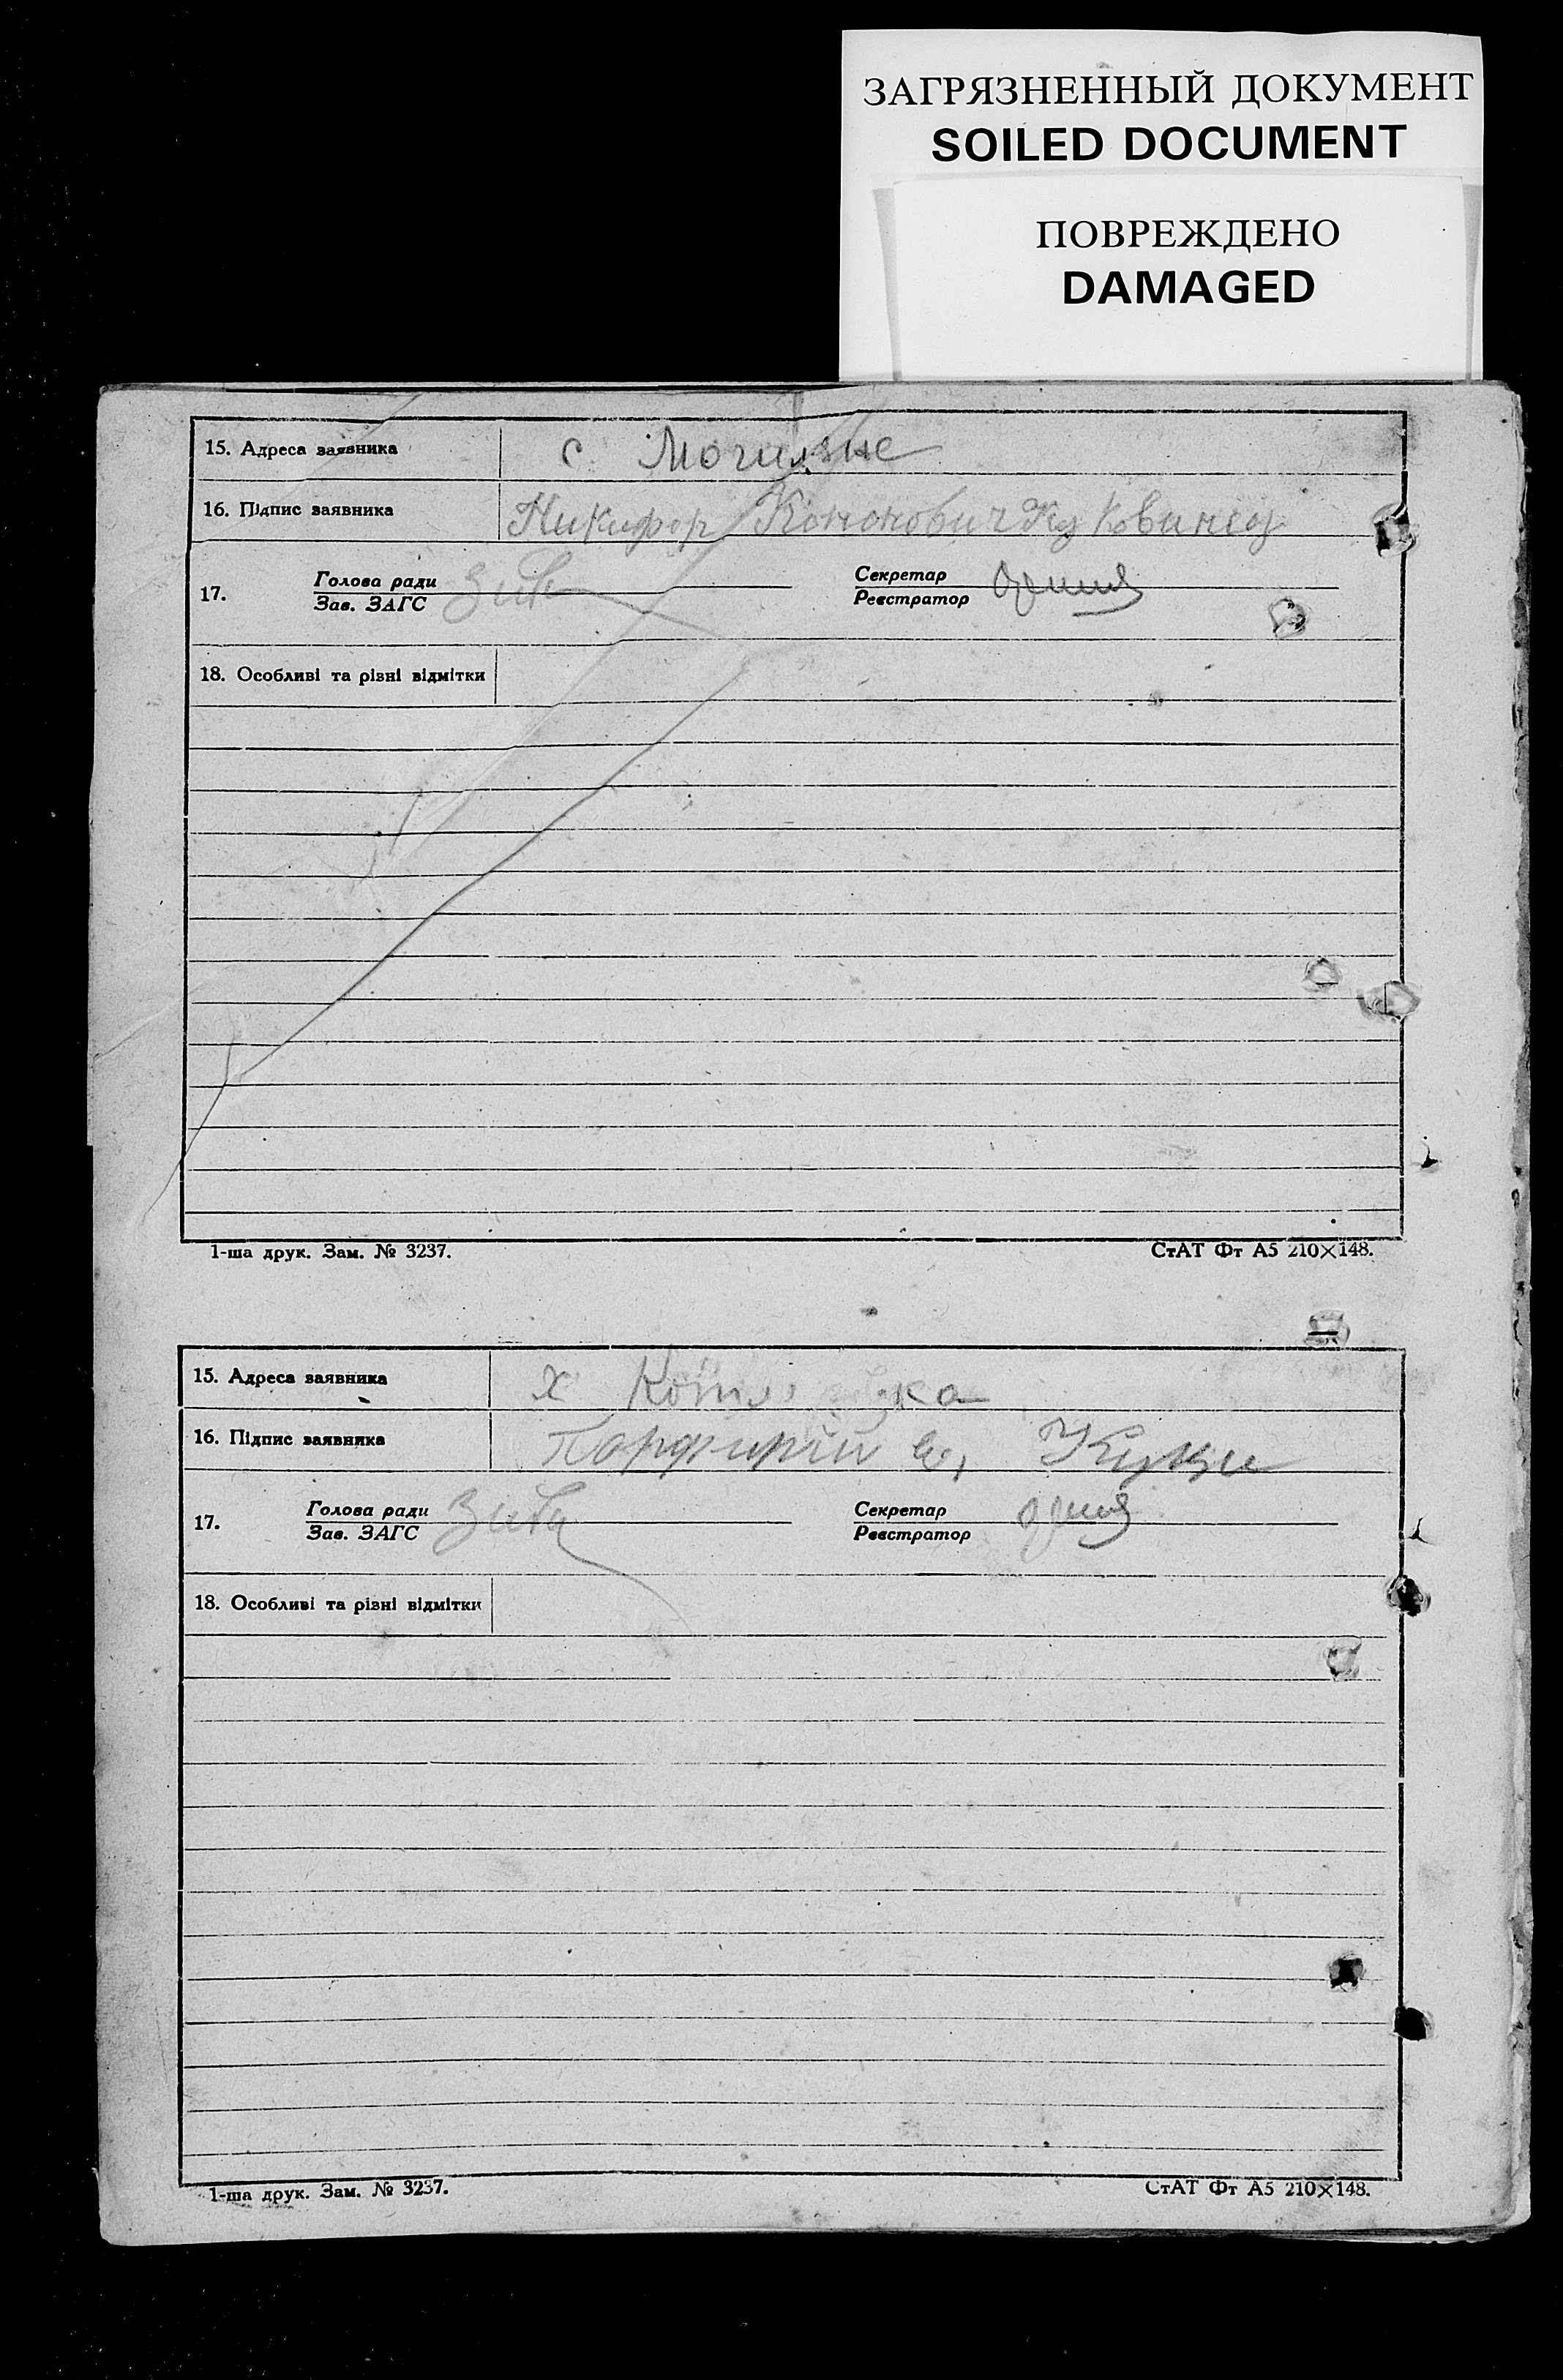 ЗАГРЯЗНЕННЫЙ ДОКУМЕНТ
SOILED DOCUMENT
ПОВРЕЖДЕНО
DAMAGED
15. Адреса заявника с Могиляне
16. Підпис заявника Никифор Кононович
17. Голова ради Секретар
Зав. ЗАГС Реєстратор
18. Особливі та різні відмітки
1-ша друк. Зам. № 3237. СтАТ Фт А5 210×148.
15. Адреса заявника х
16. Підпис заявника Порфирій
17. Голова ради Секретар
Зав. ЗАГС Реєстратор
18. Особливі та різні відмітки
1-ша друк. Зам. № 3237. СтАТ Фт А5 210×148.